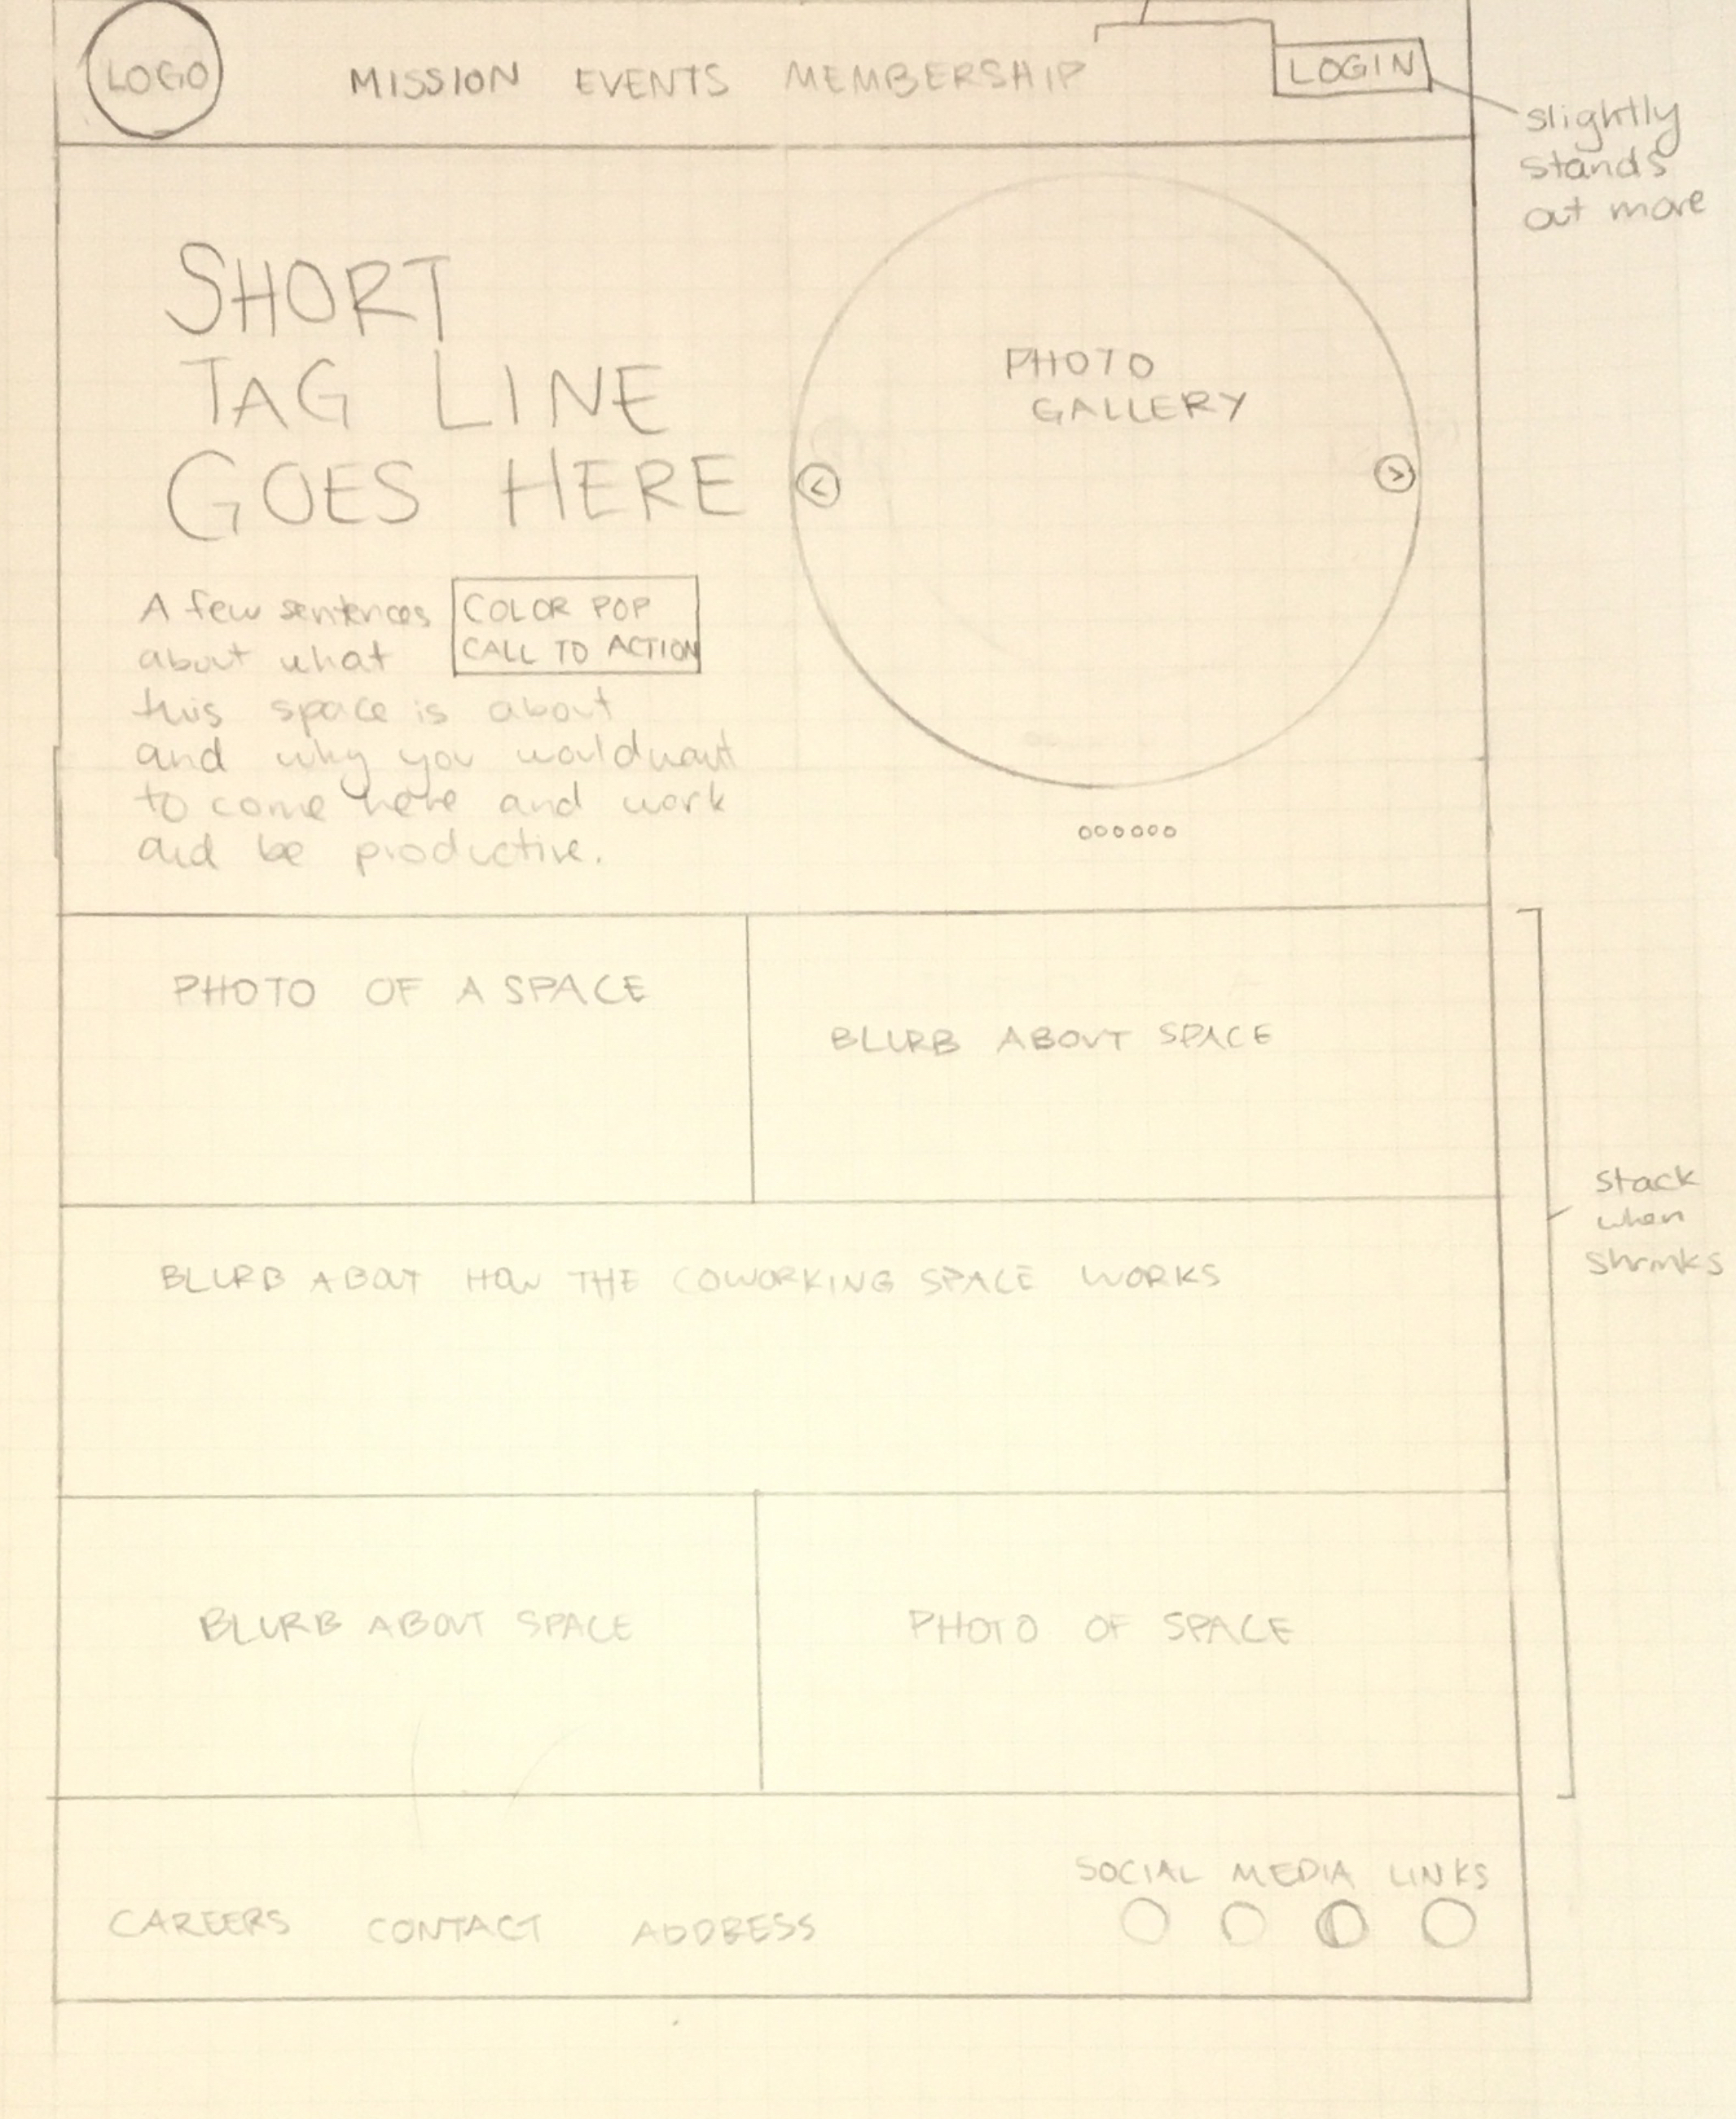 LOGO
MISSION EVENTS MEMBERSHIP
LOGIN
slightly
stands
out more
SHORT
TAG LINE
GOES HERE
PHOTO
GALLERY
<
>
A few sentences
about what
this space is about
and why you would want
to come here and work
and be productive.
COLOR POP
CALL TO ACTION
PHOTO OF A SPACE
BLURB ABOUT SPACE
stack
when
shrinks
BLURB ABOUT HOW THE COWORKING SPACE WORKS
BLURB ABOUT SPACE
PHOTO OF SPACE
SOCIAL MEDIA LINKS
CAREERS CONTACT ADDRESS